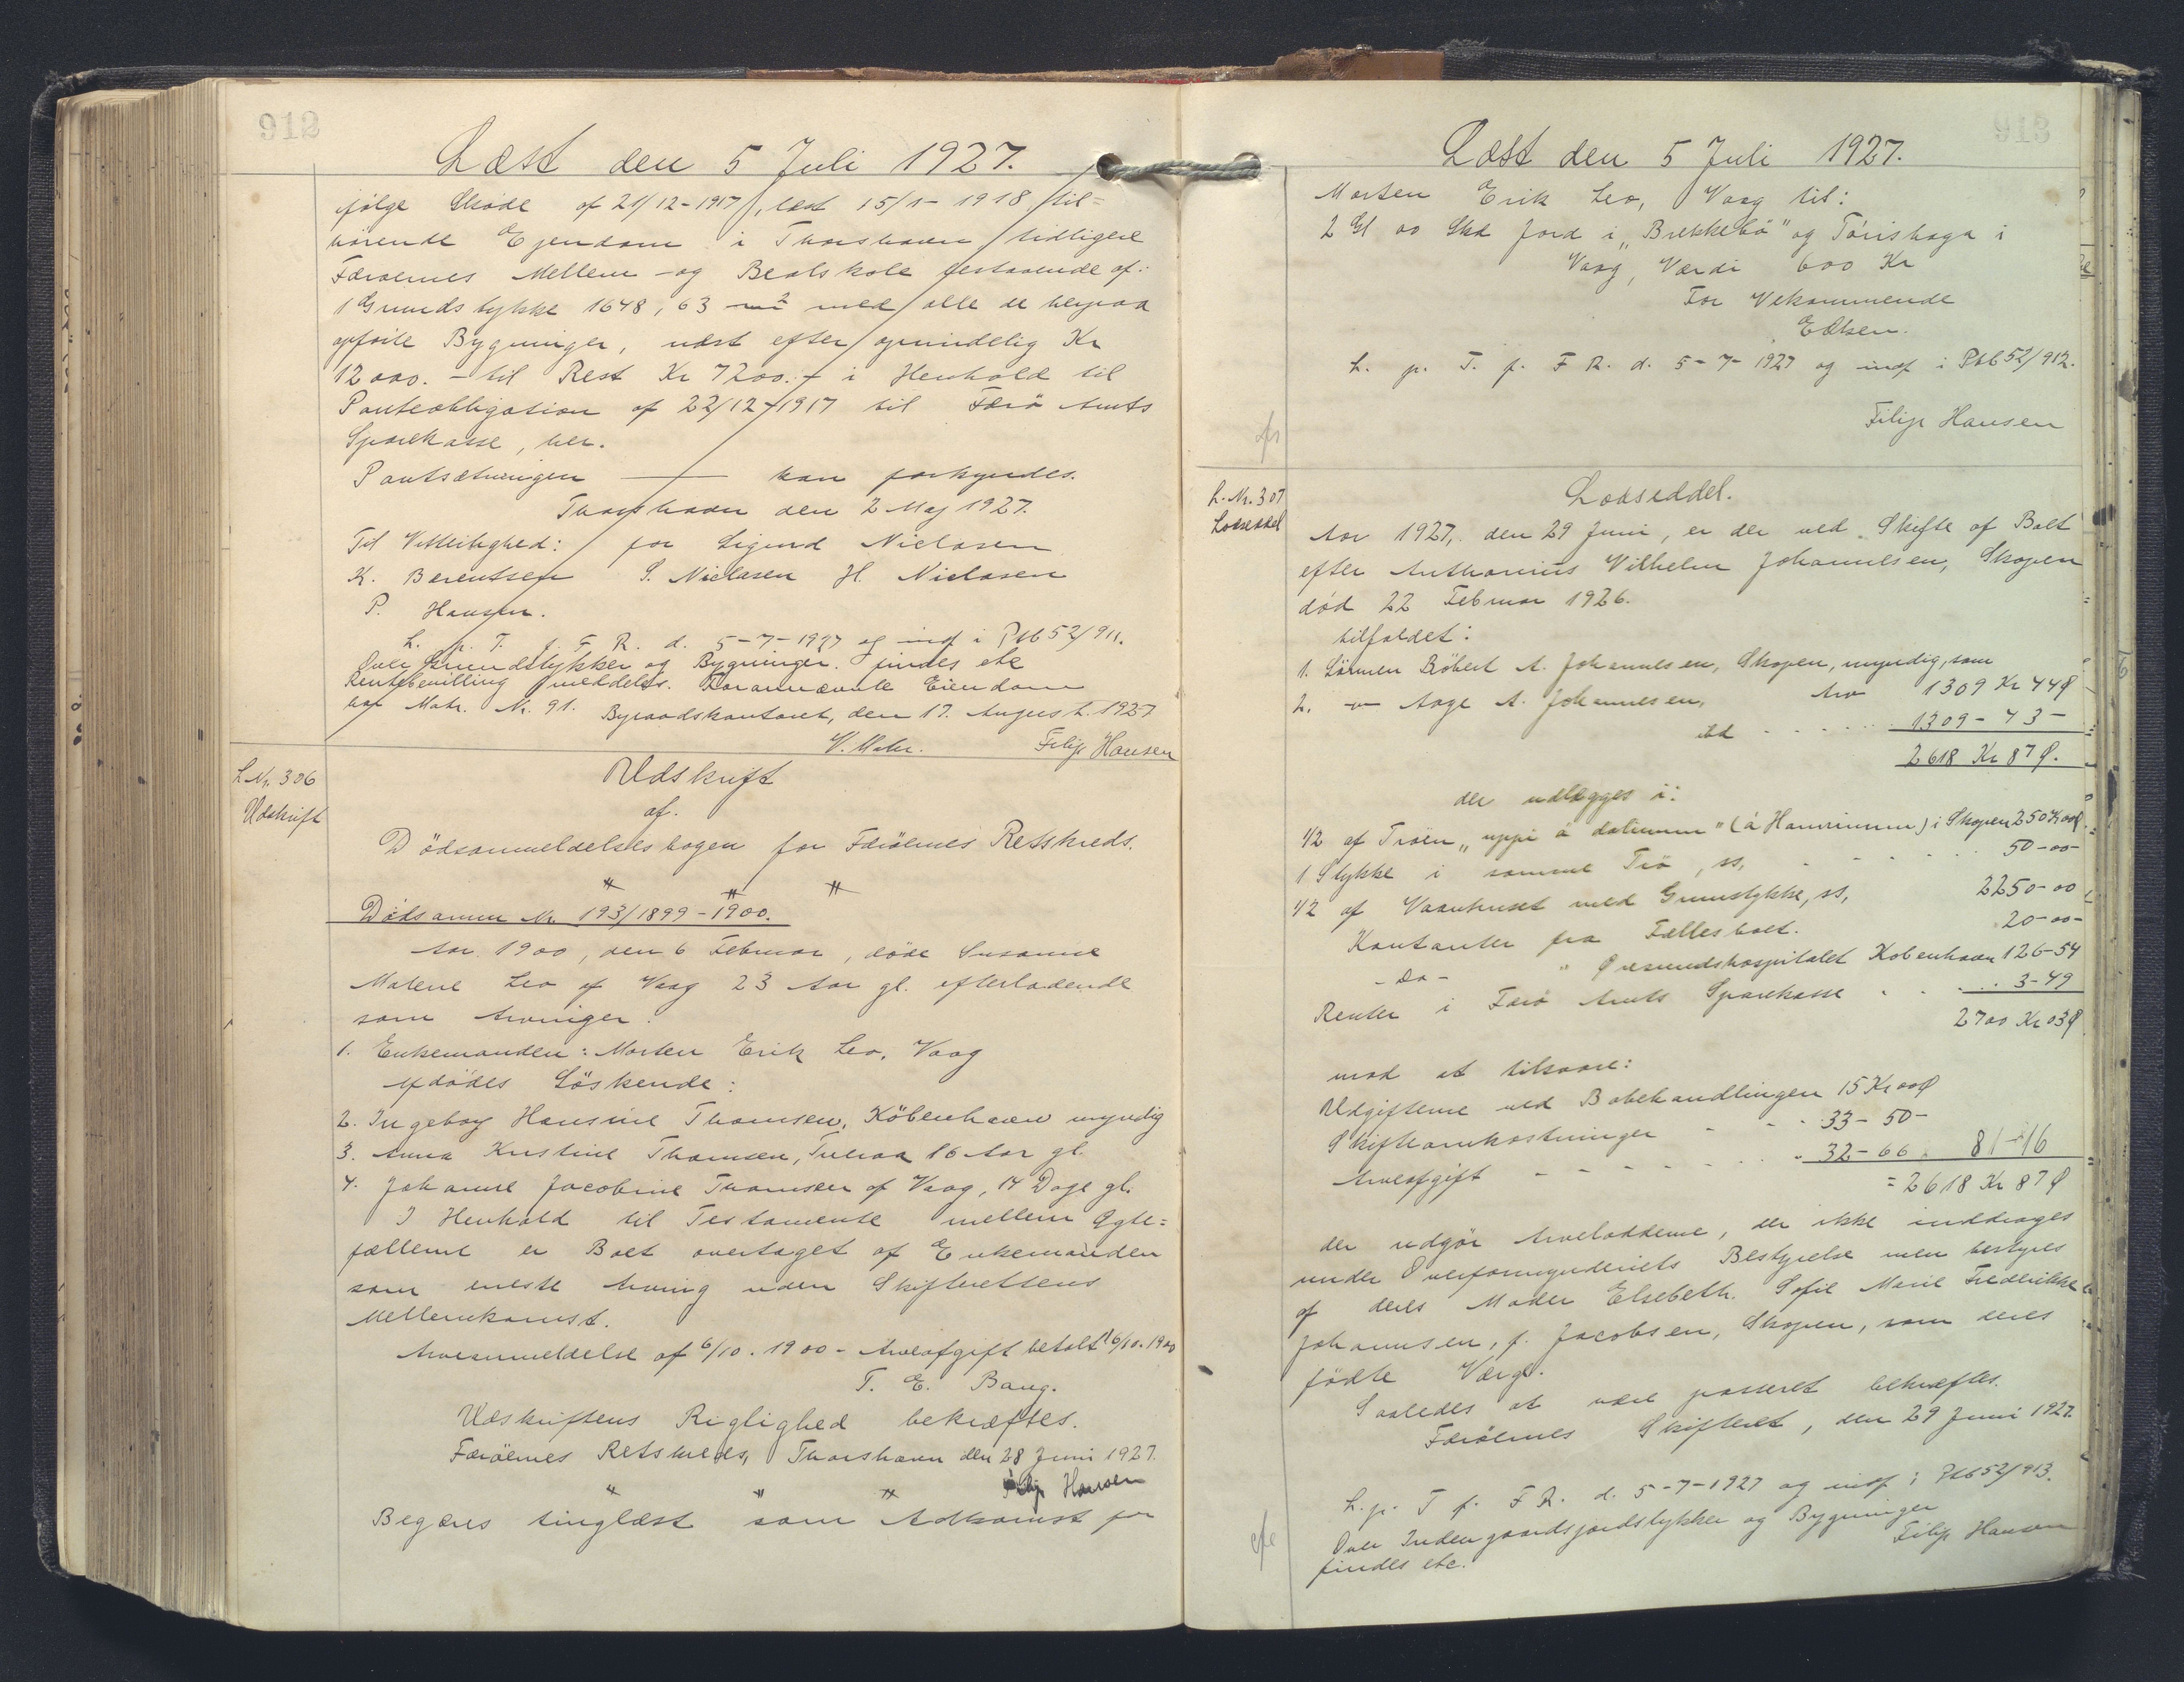 912
Læst den 5 Juli 1927.
ifølge Skøde af 21/12-1917, læst 15/1-1918 til=
hörende Ejendom i Thorshavn tidligere
Færøernes Mellem- og Realskole bestaaende af:
1 Grundstykke 1648,63 m2 med alle de herpaa
opförte Bygninger, næst efter oprindelig Kr
12000.- til Rest Kr 7200.- i Henhold til
Panteobligation af 22/12-1917 til Færö Amts
Sparekasse, her.
Pantsætningen — kan forkyndes.
Thorshavn den 2 Maj 1927.
Til Vitterlighed: for Sigurd Niclasen
K. Berentsen S. Niclasen H. Niclasen
P. Hansen.
L. p. T. f. F. R. d. 5-7-1927 og indf i Ptb 52/911.
Over Grundstykker og Bygninger findes etc
Rentebevilling meddeles. Forannævnte Eiendom
har Matr. Nr. 91. Byraadskontoret, den 17. August 1927
Filip Hansen
L Nr. 306
Udskrift
Udskrift
af.
Dödsanmeldelsesbogen for Færöernes Retskreds.
" " "
Dödsanm Nr. 193/1899-1900.
Aar 1900, den 6 Februar, døde Susanne
Malene Leo af Vaag 23 Aar gl. efterladende
som Arvinger:
1. Enkemanden: Morten Erik Leo, Vaag
Afdödes Söskende:
2. Ingeborg Hansine Thomsen, Köbenhavn myndig
3. Anna Kristine Thomsen, Tveraa 16 Aar gl.
4. Johanne Jacobine Thomsen af Vaag, 14 Dage gl.
I Henhold til Testamente mellem Ægte=
fællerne er Boet overtaget af Enkemanden
som eneste Arving uden Skifterettens
Mellemkomst.
Arveanmeldelse af 6/10. 1900 - Arveafgift betalt 16/10. 1900
T. E. Bang.
Udskriftens Rigtighed bekræftes.
Færöernes Retskreds, Thorshavn den 28 Juni 1927.
Filip Hansen
" " "
Begæres tinglæst som Adkomst for
913
Læst den 5 Juli 1927.
Morten Erik Leo, Vaag til:
2 Gl 00 Skd Jord i "Brekkebö" og Törishaga i
Vaag, Værdi 600 Kr
For Vekommende
L. p. T. f. F R. d. 5-7-1927 og indf i Ptb 52/912.
Filip Hansen
L. Nr. 307
Lodseddel
Lodseddel.
Aar 1927, den 29 Juni, er der ved Skifte af Boet
efter Anthonius Vilhelm Johannesen, Skopen
död 22 Februar 1926.
tilfaldet:
1. Sönnen Röbert A. Johannesen, Skopen, umyndig, som
Arv 1309 Kr 44 Ø
2. -"- Aage A. Johannesen,
1309 - 43 -
2618 Kr 87 Ø.
der udlægges i:
1/2 af Tröen "uppi á dalinum" (á Hamrinum) i Skopen 250 Kr 00 Ø.
1 Stykke i samme Trö, ss, 50-00-
1/2 af Vaanhuset med Grunstykke, ss, 2250-00
Kontanter fra Fællesboet. 20-00-
- Do - " Øresundshospitalet Kobenhavn 126-54
Renter i Færö Amts Sparekasse 3-49
2700 Kr 03 Ø
mod at tilsvare:
Udgifterne ved Bobehandlingen 15 Kr 00 Ø
Skifteomkostninger - - - 33-50-
Arveafgift - - - - 32-66 81-16
= 2618 Kr 87 Ø
der udgör Arvelodderne, der ikke inddrages
under Overformynderiets Bestyrelse men bestyres
af deres Moder Elsebeth Sofie Marie Frederikke
Johannsen, f. Jacobsen, Skopen, som deres
födte Værge.
Saaledes at være passeret bekræftes.
Færöernes Skifteret, den 29 Juni 1927.
L. p. T f. F R. d. 5-7-1927 og indf i Ptb 52/913.
Over Indengaardsjordstykker og Bygninger
findes etc.
Filip Hansen